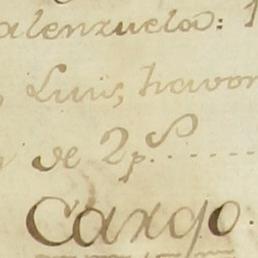 alenzuela: 1
Luis, havon
de 2 p.s......
Cargo.